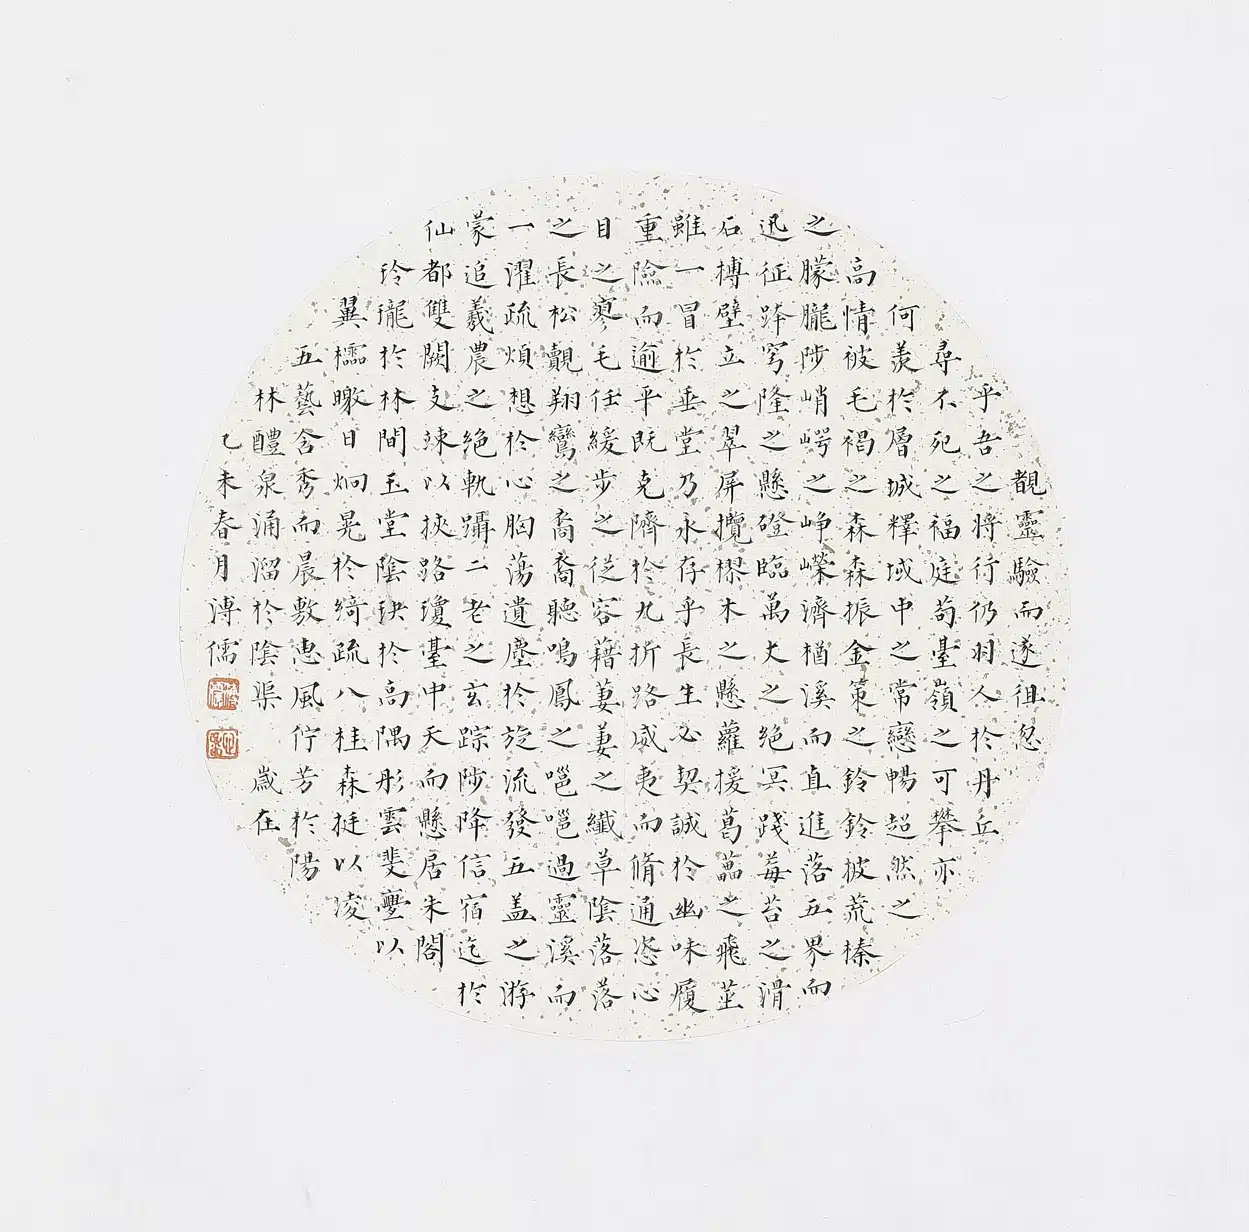 覩靈驗而遂徂忽
乎吾之將行仍羽人於丹丘
尋不死之福庭苟臺嶺之可攀亦
何羨於層城釋域中之常戀暢超然之
高情被毛褐之森森振金策之鈴鈴披荒榛
之朦朧陟峭崿之崢嶸濟楢溪而直進落五界而
迅征跨穹隆之懸磴臨萬丈之絕冥踐莓苔之滑
石摶壁立之翠屏攬樛木之懸蘿援葛藟之飛莖
雖一冒於垂堂乃永存乎長生必契誠於幽昧履
重險而逾平既克隮於九折路威夷而脩通恣心
目之寥毛任緩步之從容藉萋萋之纖草陰落落
之長松覿翔鸞之裔裔聽鳴鳳之嗈嗈過靈溪而
一濯疏煩想於心胸蕩遺塵於旋流發五盖之游
蒙追羲農之絕軌躡二老之玄踪陟降信宿迄於
仙都雙闕支竦以挾路瓊臺中天而懸居朱閣
玲瓏於林間玉堂陰玦於高隅彤雲斐亹以
翼櫺曒日炯晃於綺疏八桂森挺以凌
五藝含秀而晨敷惠風佇芳於陽
林醴泉涌溜於陰渠 歲在
乙未春月溥儒
溥儒
心畬